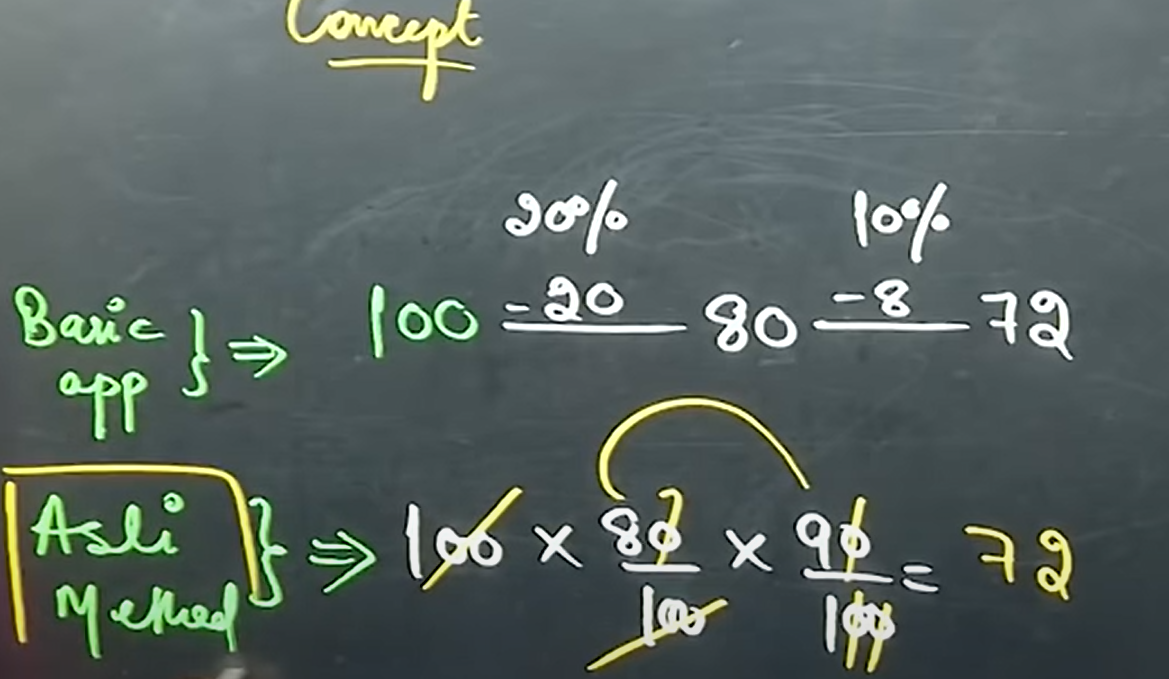 Concept
20% 10%
Basic app } ⇒ 100 -20 80 -8 72
Asli Method } ⇒ 100 × 80/100 × 90/100 = 72